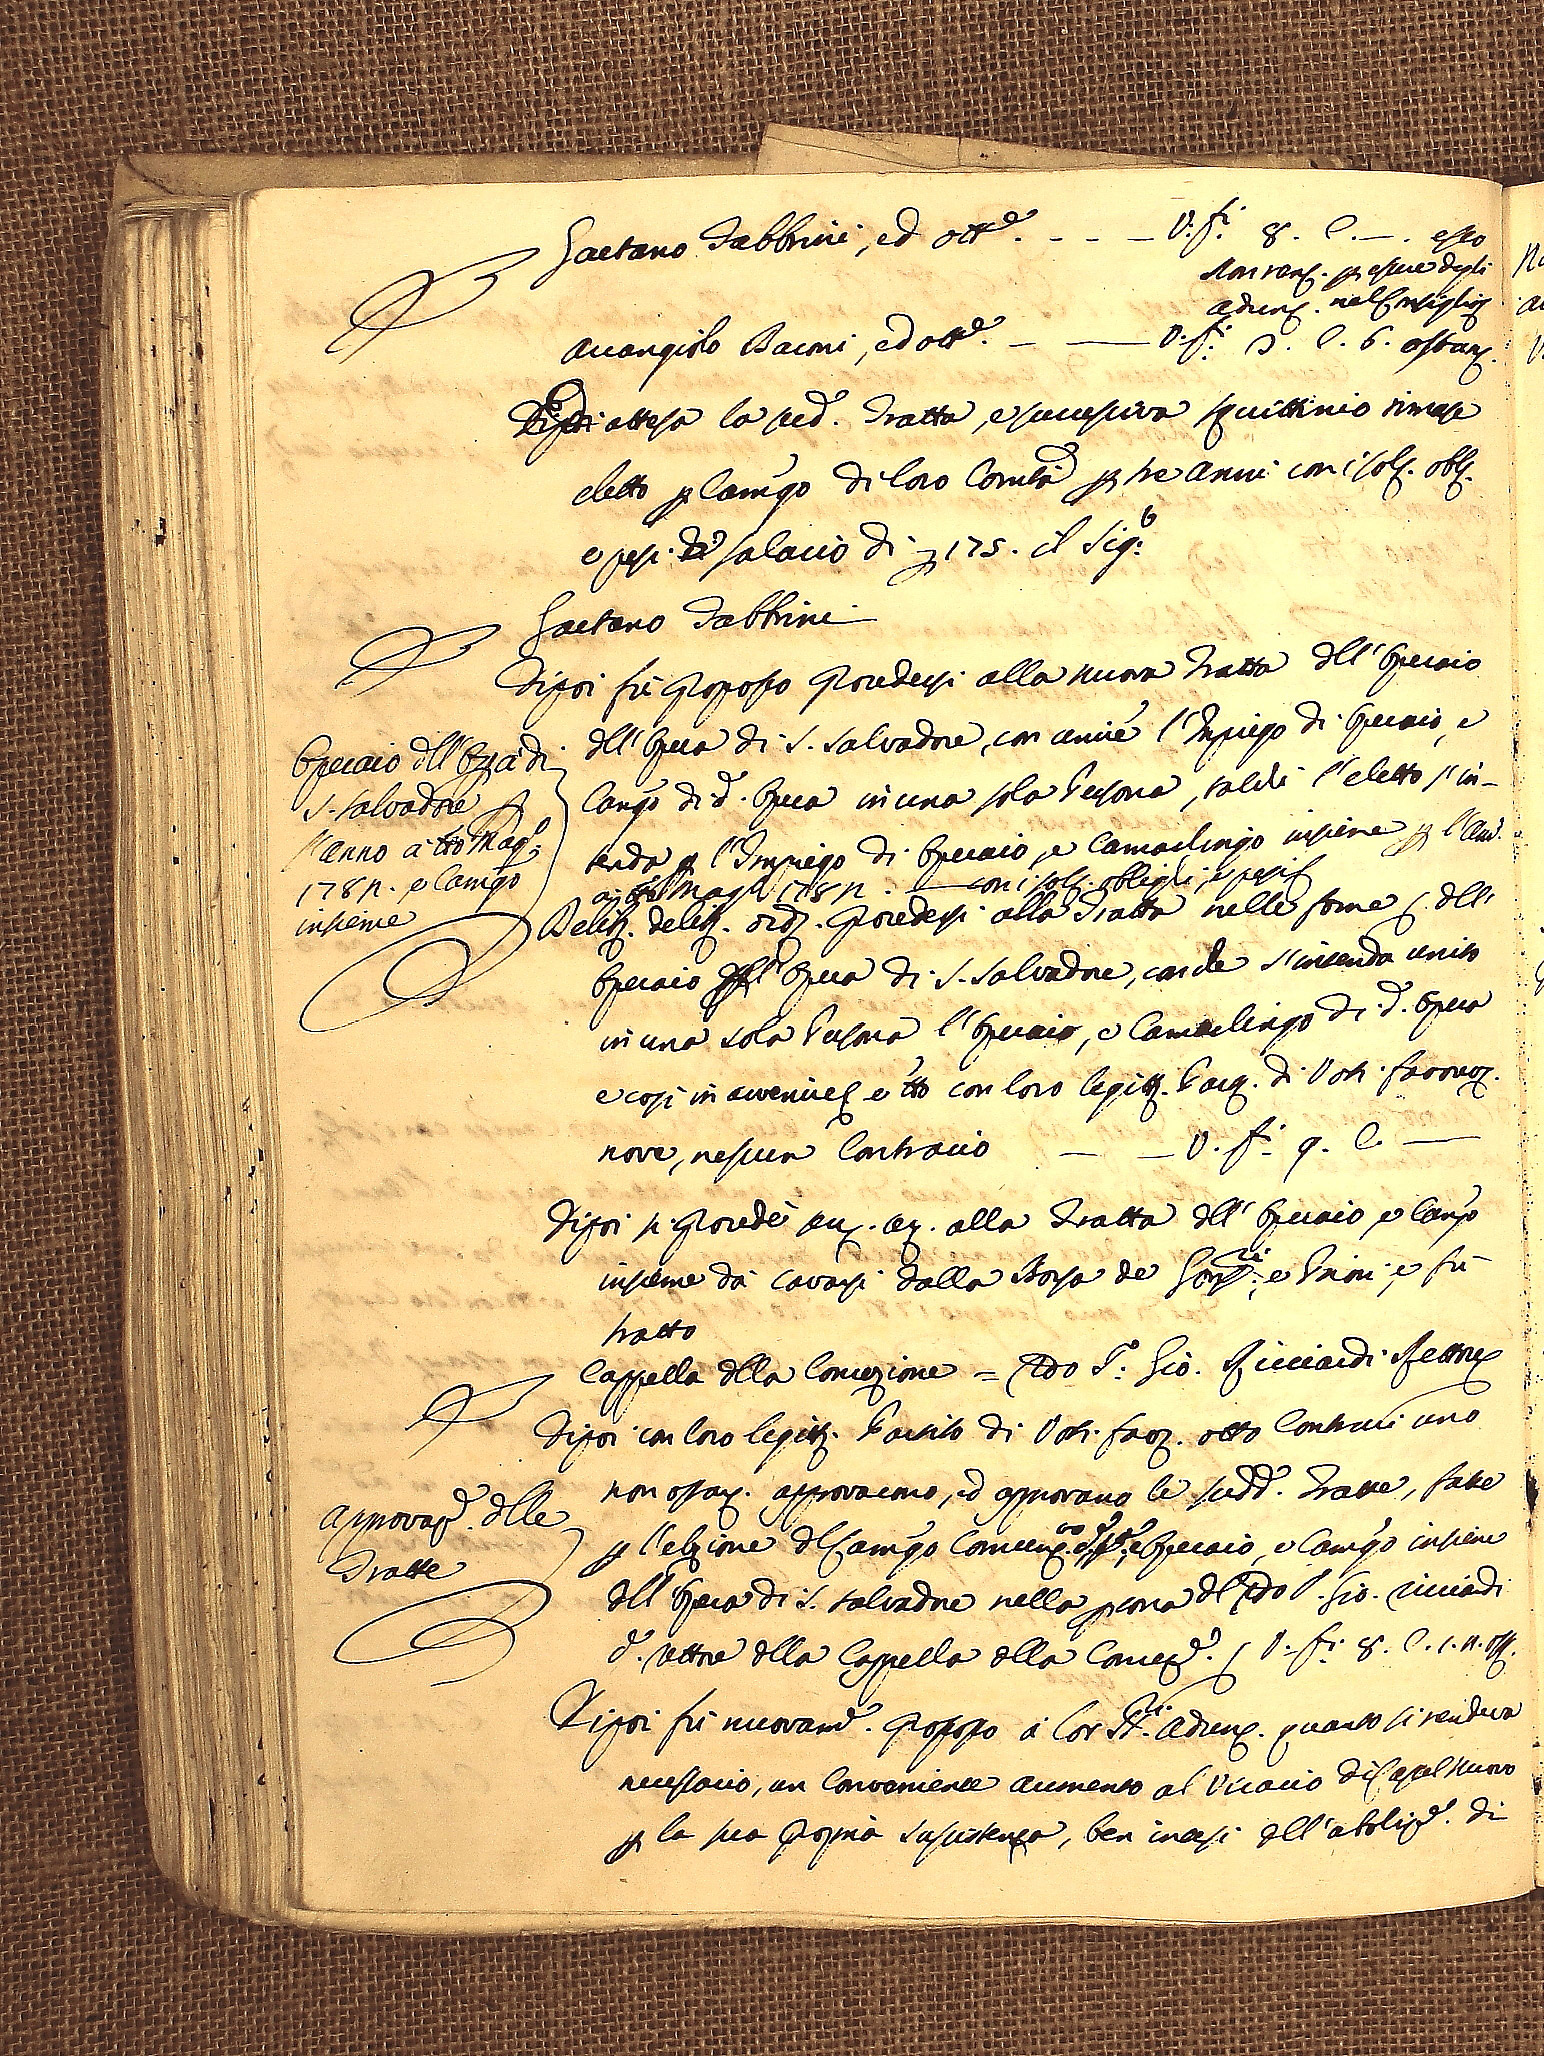 Gaetano Fabbrini, ed ott.e - - - V. f.i 8. C. —. esso
non rend. p essere degli
adunz. nel Consiglio
Arcangiolo Baconi, ed ott.e — — V. f.i 3. C. 6. ostanz.
attesa la sud. Tratta, e successiva squittinio rimase
eletto p Camgo di loro Comtà p tre anni con i sol. obb.
e pesi salario di 175. il Sig.
Gaetano Fabbrini
Dipoi fù proposto procedersi alla nuova Tratta dell' Operaio
dell' Opera di S. Salvadore, con unire l'Impiego di Operaio, e
Camgo di d. Opera in una sola Persona, talche l'eletto s'in-
tenda p l'Impiego di Operaio, e Camarlingo insieme p l'an.
a tto Magg. 178 con i sol. obblighi, e pesi
Operaio dell' Opera di
S. Salvadore p
l'anno a tto Magg.
178 . e Camgo
insieme
Delib. delib. ord. procedersi alla Tratta nelle forme dell'
Operaio dell' Opera di S. Salvadore, con che s'intenda unito
in una sola Persona l'Operaio, e Camarlingo di d. Opera
e così in avvenire e tto con loro legitt. Part. di Voti favorev.
nove, nessun Contrario — — V. f.i 9. C —
Dipoi si procedè alla Tratta dell' Operaio e Camgo
insieme da cavarsi dalla Borsa de Gonf.ri, e Priori, e fù
tratto
Cappella della Concezione = Rdo P. Gio. Ricciardi Rettore
Dipoi con loro legitt. Partito di Voti favor. otto Contrari uno
non ostan. approvarono, ed approvano le sudd. Tratte, fatte
p l'elezione del Camgo e Operaio, e Camgo insieme
dell' Opera di S. Salvadore nella persona del Rdo P. Gio. Ricciardi
d. rettore della Cappella della Concez. V. f.i 8. C. 1. n. ost.
Approvaz. delle
Tratte
Dipoi fù nuovam. proposto a Lor SS.ri Adunz. quanto si rendeva
necessario, un Conveniente aumento al Vicario di Castel Nuovo
p la sua propria sussistenza, ben intesi dell' aboliz. di